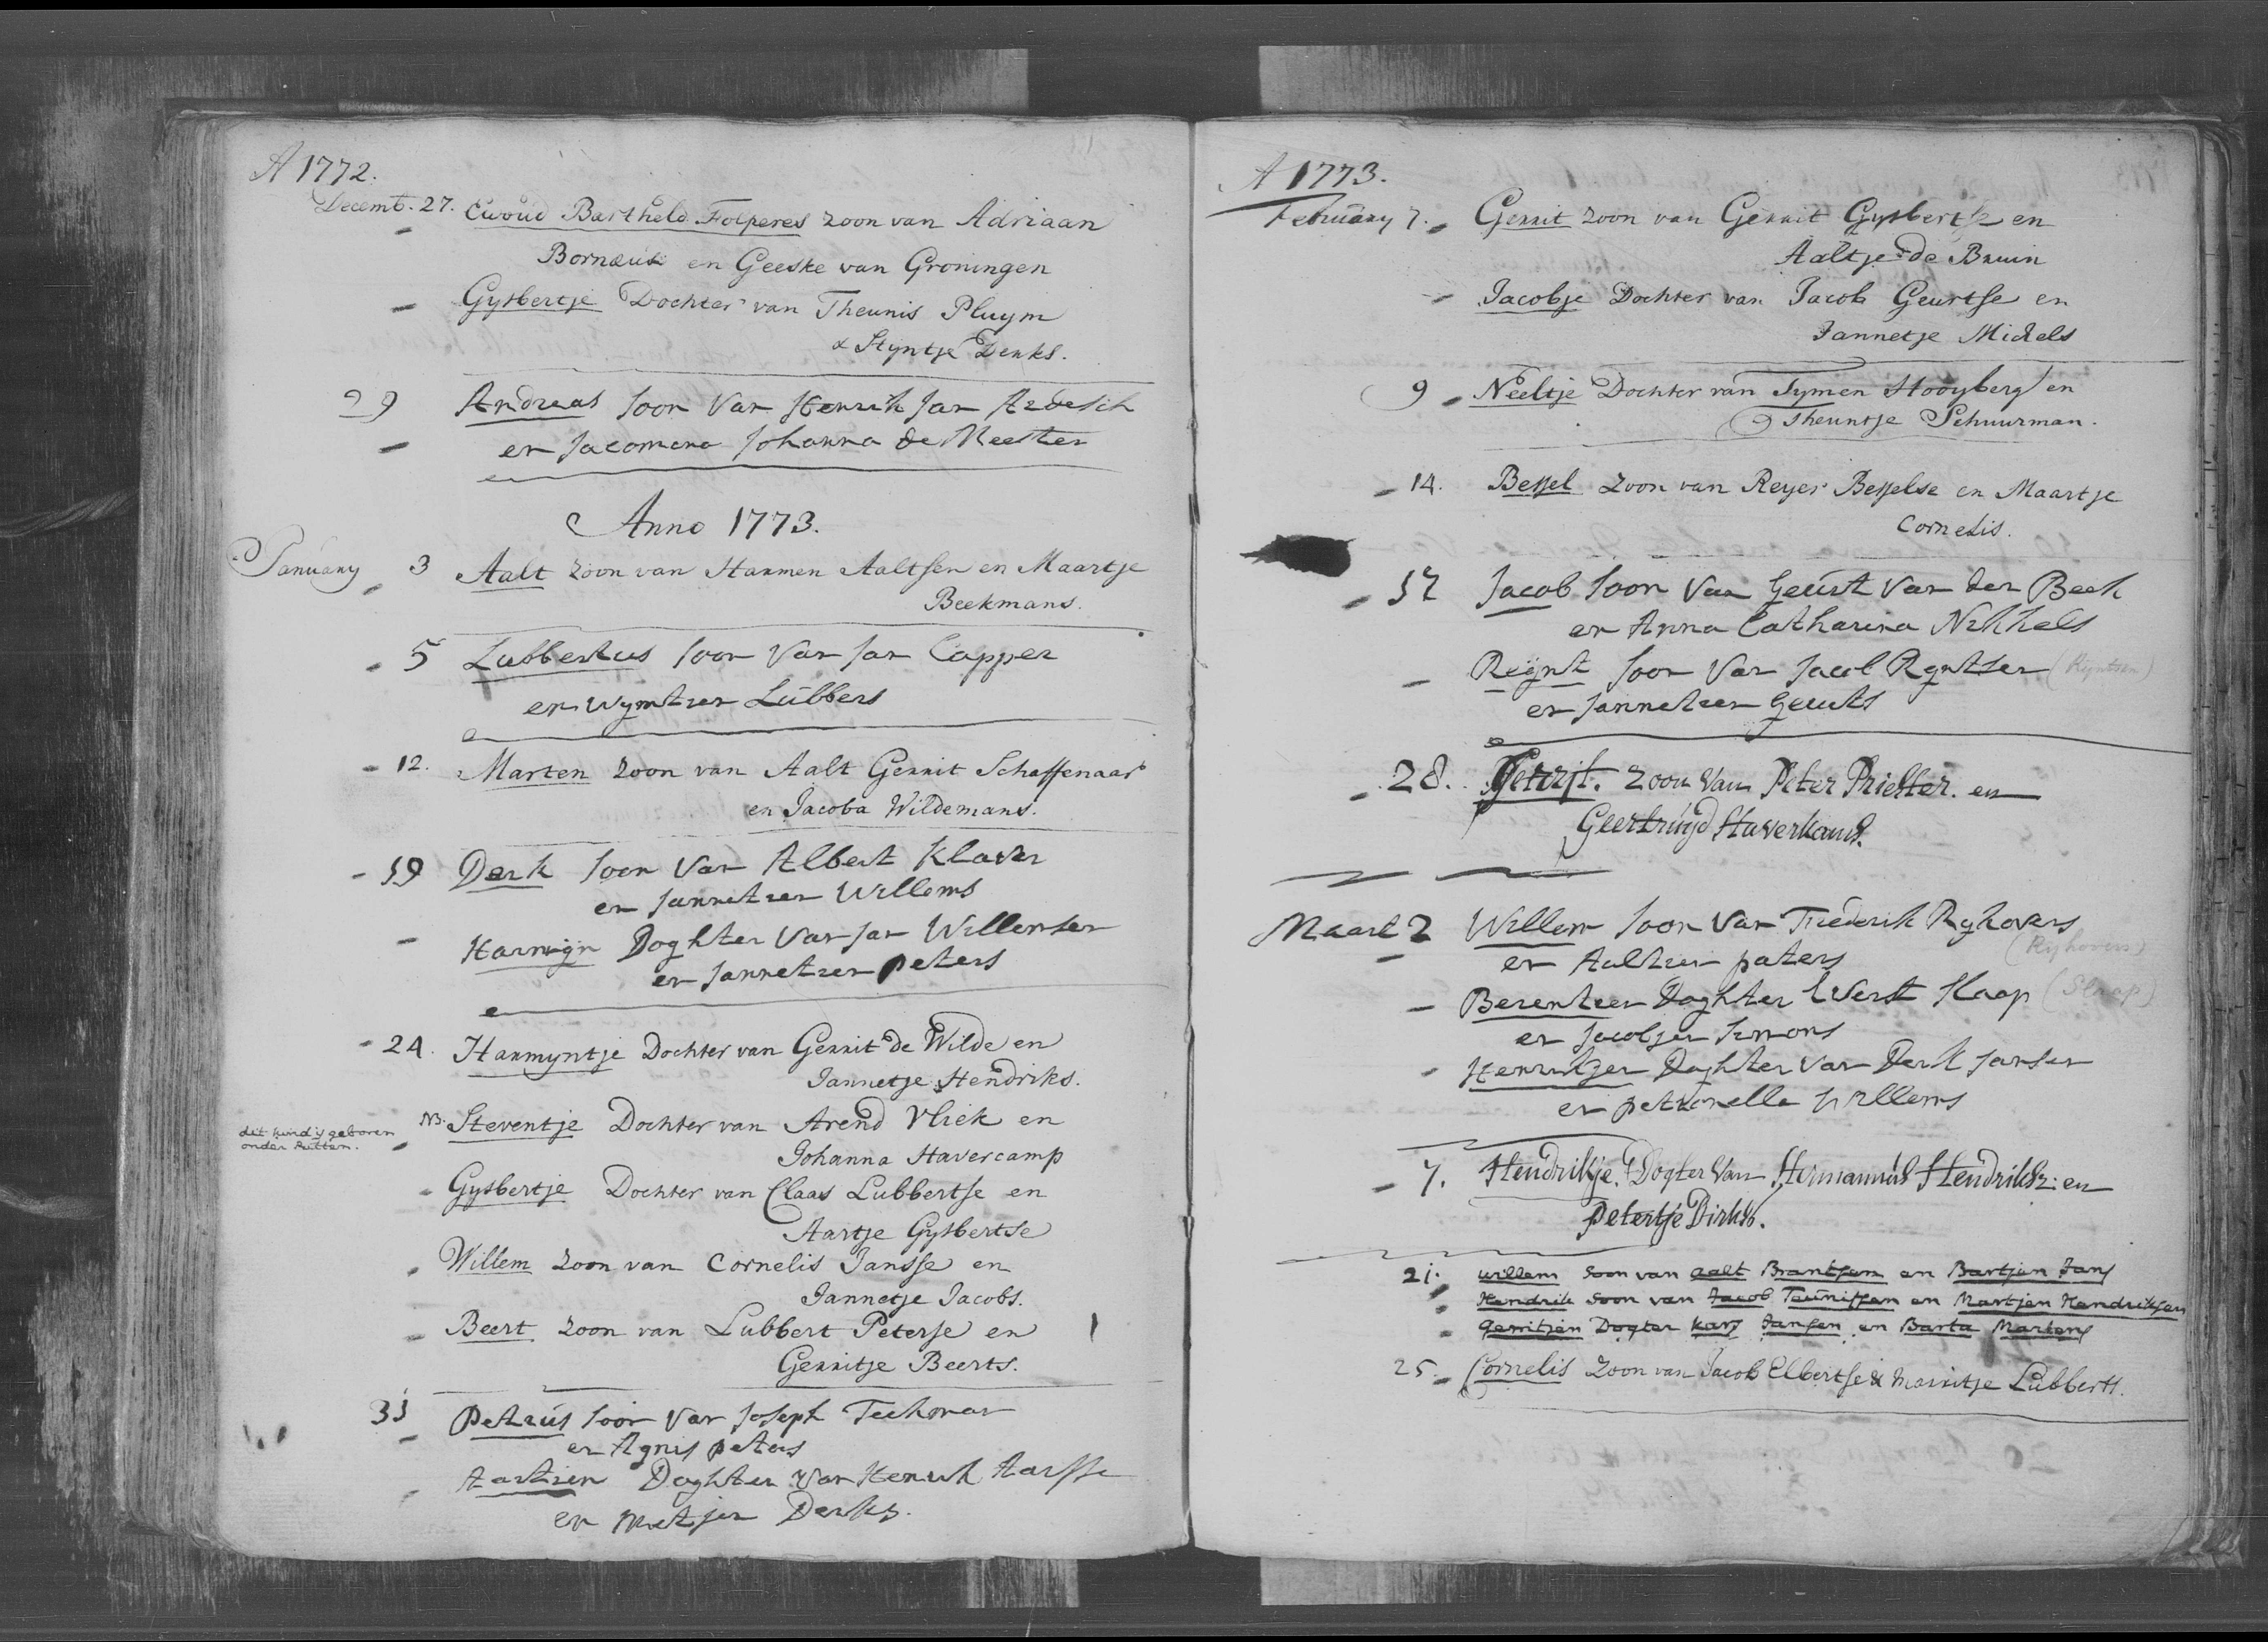 A 1772.
Decemb. 27. Ewoud Bartheld Folperes zoon van Adriaan
Bornæus en Geeske van Groningen
Gysbertje Dochter van Theunis Pluym
& Styntje Derks.
29 Andreas soon van Henrik Jan Ardesch
en Jacomena Johanna de Meester
Anno 1773.
January 3 Aalt zoon van Harmen Aaltsen en Maartje
Beekmans.
5 Lubbertus soon van Jan Capper
en Wymtien Lubbers
12. Marten zoon van Aalt Gerrit Schaffenaar
en Jacoba Wildemans.
19 Derk soon van Albert Klaver
en Jannetien Willems
Harmijn Doghter van Jan Willemsen
en Jannetien peters
24. Harmyntje Dochter van Gerrit de Wilde en
Jannetje Hendriks.
dit kind is geboren
onder Putten.
NB. Steventje Dochter van Arend Vliek en
Johanna Havercamp
Gysbertje Dochter van Claas Lubbertse en
Aartje Gysbertse
Willem zoon van Cornelis Jansse en
Jannetje Jacobs.
Beert zoon van Lubbert Peterse en
Gerritje Beerts.
31 Petrus soon van Joseph Teekman
en Agnis peters
Aartien Doghter van Henrik Aartse
en Metjen Derks.
A 1773.
February 7. Gerrit zoon van Gerrit Gysbertse en
Aaltje de Bruin
Jacobje Dochter van Jacob Geurtse en
Jannetje Michels
9 Neeltje Dochter van Tymen Hooyberg en
Theuntje Schuurman.
14. Bessel zoon van Reyer Besselse en Maartje
Cornelis.
17 Jacob soon van Geurt van der Beek
en Anna Catharina Nikkels
Reijnt soon van Jacob Ryntsen (Ryntsen)
en Jannetien Geurts
28. Gerrit. zoon van Peter Priester. en
Geertruyd Haverkamp.
Maart 2 Willem soon van Frederik Ryhovers
(Ryhovers)
en Aaltien peters
Berentien Doghter Evert Slaap (Slaap)
en Jacobjen Simons
Henrikjen Doghter van Derk Jansen
en petronella Willems
7. Hendrikje. Dogter van Hermannus Hendriksz: en
Petertje Dirks.
21. willem soon van aalt Brantsen en Bartjen Jans
Hendrik soon van Jacob Teunissen en Martjen Hendriksen
Gerritjen Dogter Kars Jansen en Barta Martens
25. Cornelis zoon van Jacob Elbertse & Marritje Lubberts.